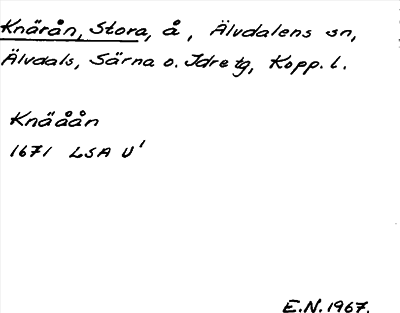 Knärån, Stora, å, Älvdalens sn,
Älvdals, Särna o. Idre tg, Kopp. l.
Knäåån
1671 LSA U¹
E.N. 1967.